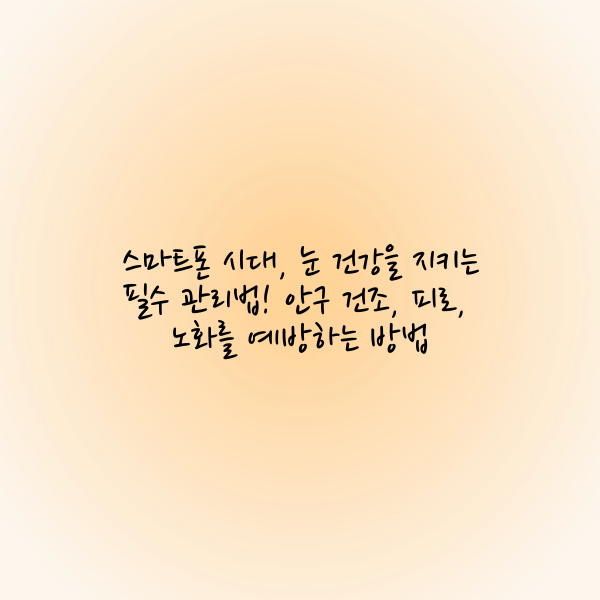 스마트폰 시대, 눈 건강을 지키는
필수 관리법! 안구 건조, 피로,
노화를 예방하는 방법